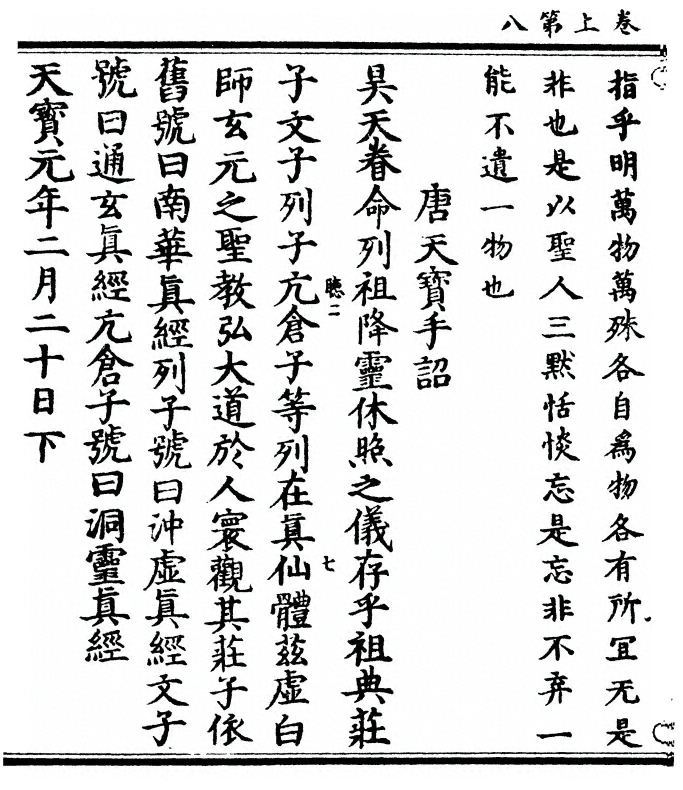 卷上第八
指乎明萬物萬殊各自爲物各有所宜无是
非也是以聖人三默恬惔忘是忘非不弃一
能不遺一物也
唐天寶手詔
昊天眷命列祖降靈休照之儀存乎祖典莊
聽二
七
子文子列子亢倉子等列在眞仙體茲虛白
師玄元之聖教弘大道於人寰觀其莊子依
舊號曰南華眞經列子號曰沖虛眞經文子
號曰通玄眞經亢倉子號曰洞靈眞經
天寶元年二月二十日下